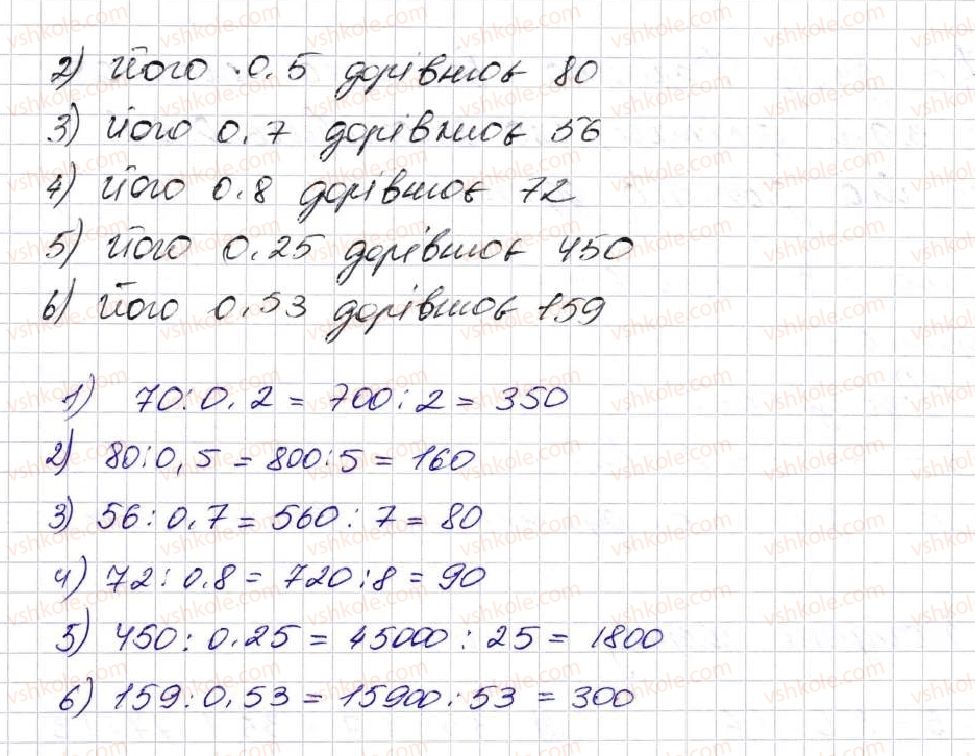 2) його 0,5 дорівнює 80
3) його 0,7 дорівнює 56
4) його 0,8 дорівнює 72
5) його 0,25 дорівнює 450
6) його 0,53 дорівнює 159
1) 70 : 0,2 = 700 : 2 = 350
2) 80 : 0,5 = 800 : 5 = 160
3) 56 : 0,7 = 560 : 7 = 80
4) 72 : 0,8 = 720 : 8 = 90
5) 450 : 0,25 = 45000 : 25 = 1800
6) 159 : 0,53 = 15900 : 53 = 300